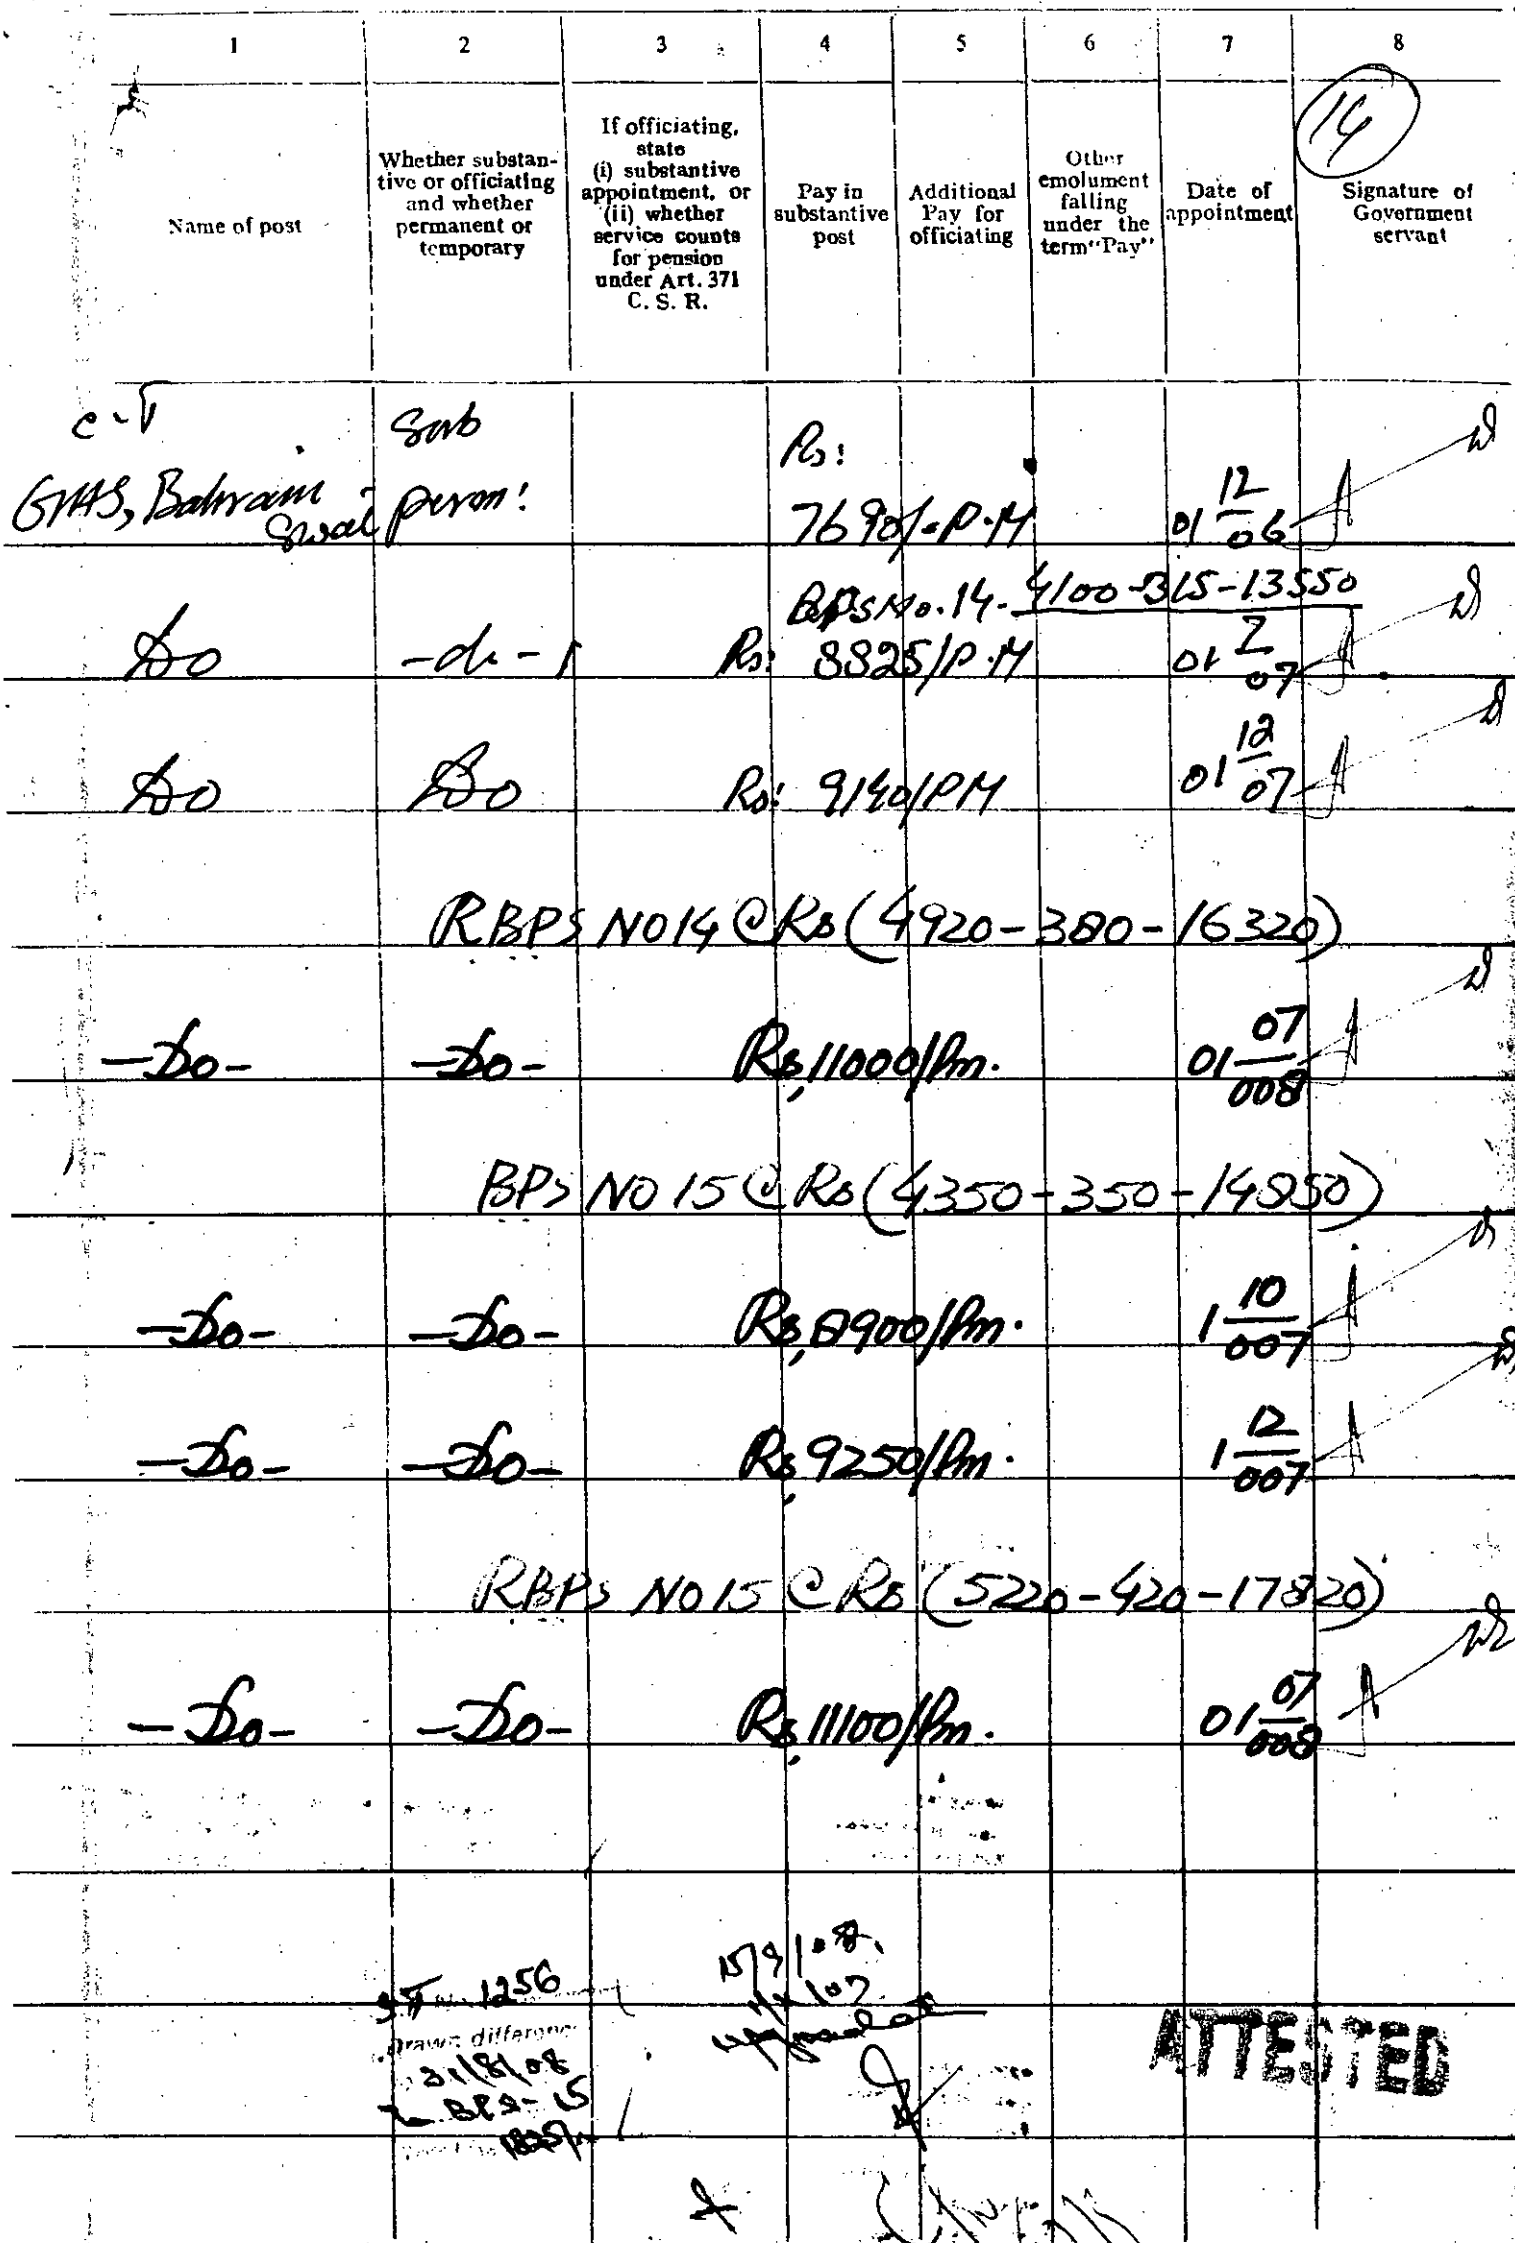 1 2 3 4 5 6 7 8
14
Name of post
Whether substan-
tive or officiating
and whether
permanent or
temporary
If officiating,
state
(i) substantive
appointment, or
(ii) whether
service counts
for pension
under Art. 371
C. S. R.
Pay in
substantive
post
Additional
Pay for
officiating
Other
emolument
falling
under the
term "Pay"
Date of
appointment
Signature of
Government
servant
C-T Sub Rs:
GHS, Bahrain Swat perm: 7690/-P.M 01 12/06
BPS No. 14. 4100-315-13550
Do -do- Rs: 8825/P.M 01 7/07
Do Do Rs: 9140/PM 01 12/07
RBPS NO 14 @ Rs (4920-380-16320)
-Do- -Do- Rs, 11000/Pm. 01 07/008
BPS NO 15 @ Rs (4350-350-14850)
-Do- -Do- Rs, 8900/Pm. 1 10/007
-Do- -Do- Rs, 9250/Pm. 1 12/007
RBPS NO 15 @ Rs (5220-420-17820)
-Do- -Do- Rs, 11100/Pm. 01 07/008
1256
Drawn difference
31/8/08
BPS-15
ATTESTED